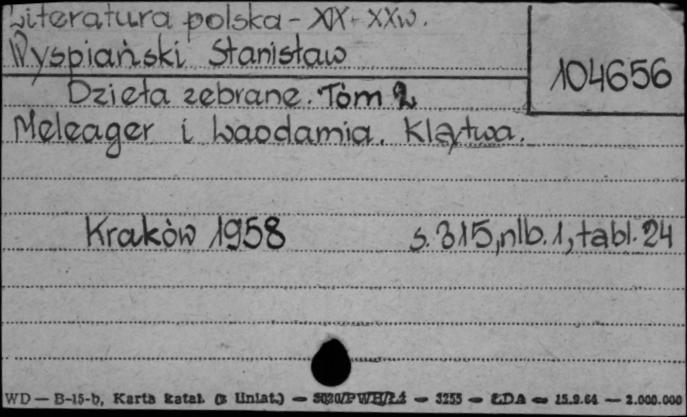 Literatura polska - XIX - XXw.
Wyspiański Stanisław
104656
Dzieła zebrane. Tom 2
Meleager i Laodamia. Klątwa.
Kraków 1958 s. 315, nlb. 1, tabl. 24
WD — B-15-b, Karta katal. (z liniat.) — — 3255 — ŁDA — 15.9.64 — 2.000.000